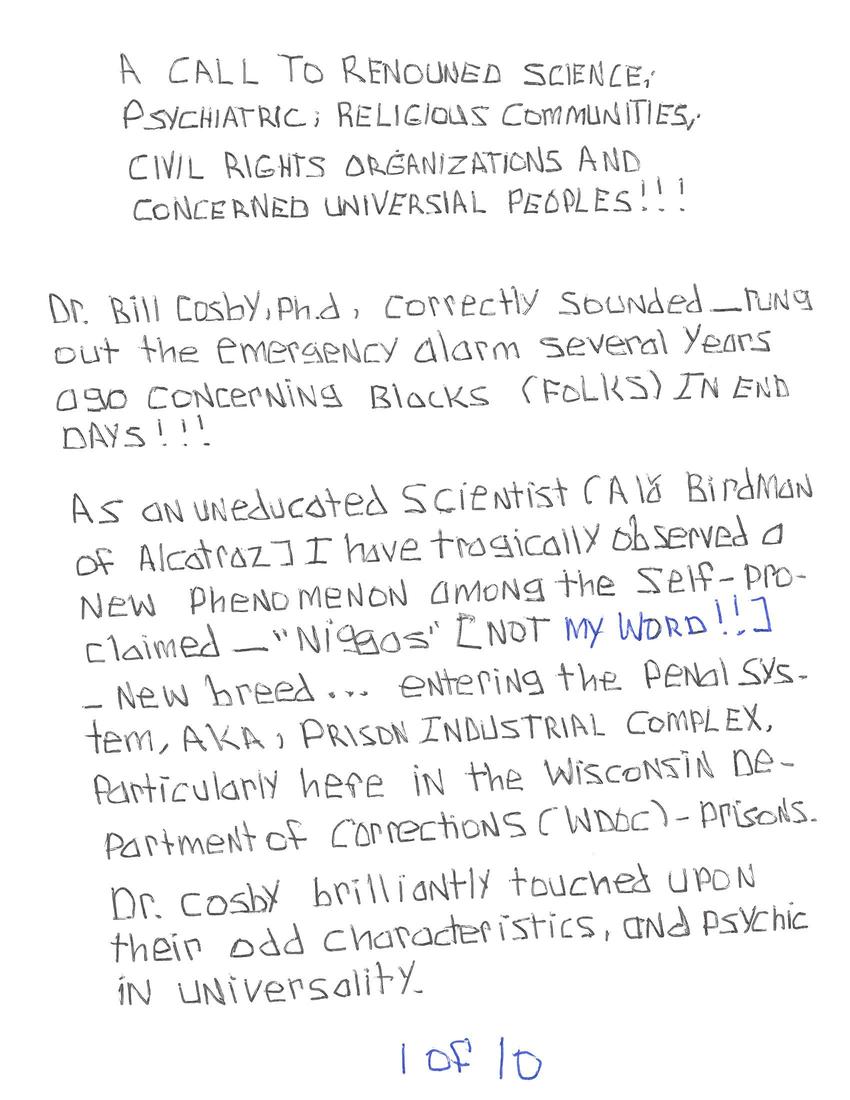 A CALL TO RENOUNED SCIENCE,
PSYCHIATRIC, RELIGIOUS COMMUNITIES,
CIVIL RIGHTS ORGANIZATIONS AND
CONCERNED UNIVERSIAL PEOPLES!!!
Dr. Bill Cosby, Ph.d, correctly sounded_rung
out the emergency alarm several years
ago concerning Blacks (FOLKS) IN END
DAYS!!!
As an uneducated Scientist (Ala BirdMan
of Alcatraz] I have tragically observed a
New phenomenon among the Self-pro-
claimed — "Niggas" [NOT MY WORD!!]
- New breed... entering the penal sys-
tem, AKA, PRISON INDUSTRIAL COMPLEX,
Particularly here in the Wisconsin De-
Partment of Corrections (WDOC)-prisons.
Dr. Cosby brilliantly touched upon
their odd characteristics, and psychic
in universality.
1 of 10